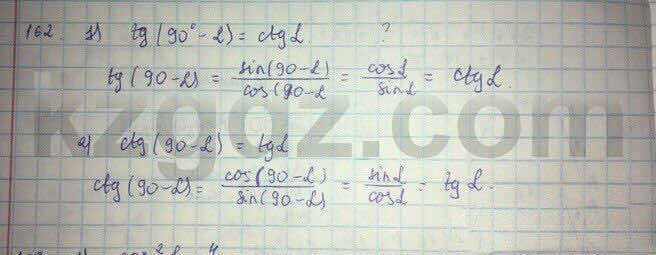 162. 1) tg(90°-α) = ctgα ?
tg(90-α) = sin(90-α)/cos(90-α = cosα/sinα = ctgα.
kzgdz.com
2) ctg(90-α) = tgα
ctg(90-α) = cos(90-α)/sin(90-α) = sinα/cosα = tgα.